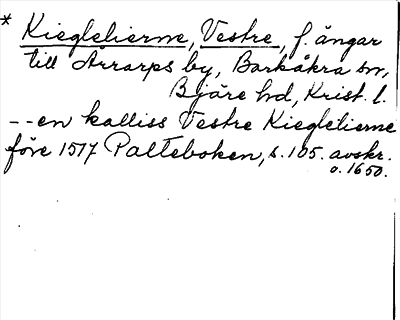 * Kieglelierne, Vestre, f. ängar
till Årrarps by, Barkåkra sn,
Bjäre hd, Krist. l.
-- en kalliss Vestre Kieglelierne
före 1517 Palteboken, s. 105. avskr.
o. 1650.